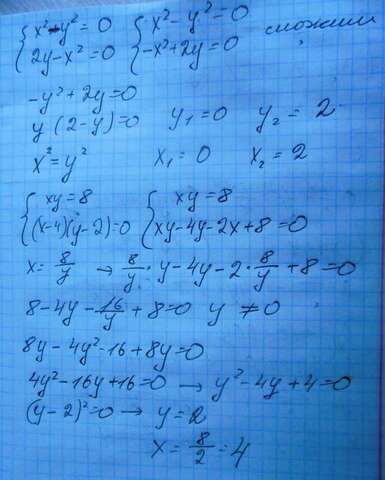 {x² - y² = 0 {x² - y² = 0 сложим
{2y - x² = 0 {-x² + 2y = 0
-y² + 2y = 0
y (2 - y) = 0 y₁ = 0 y₂ = 2
x² = y² x₁ = 0 x₂ = 2
{xy = 8 {xy = 8
{(x-4)(y-2) = 0 {xy - 4y - 2x + 8 = 0
x = 8/y → 8/y · y - 4y - 2 · 8/y + 8 = 0
8 - 4y - 16/y + 8 = 0 y ≠ 0
8y - 4y² - 16 + 8y = 0
4y² - 16y + 16 = 0 → y² - 4y + 4 = 0
(y - 2)² = 0 → y = 2
x = 8/2 = 4